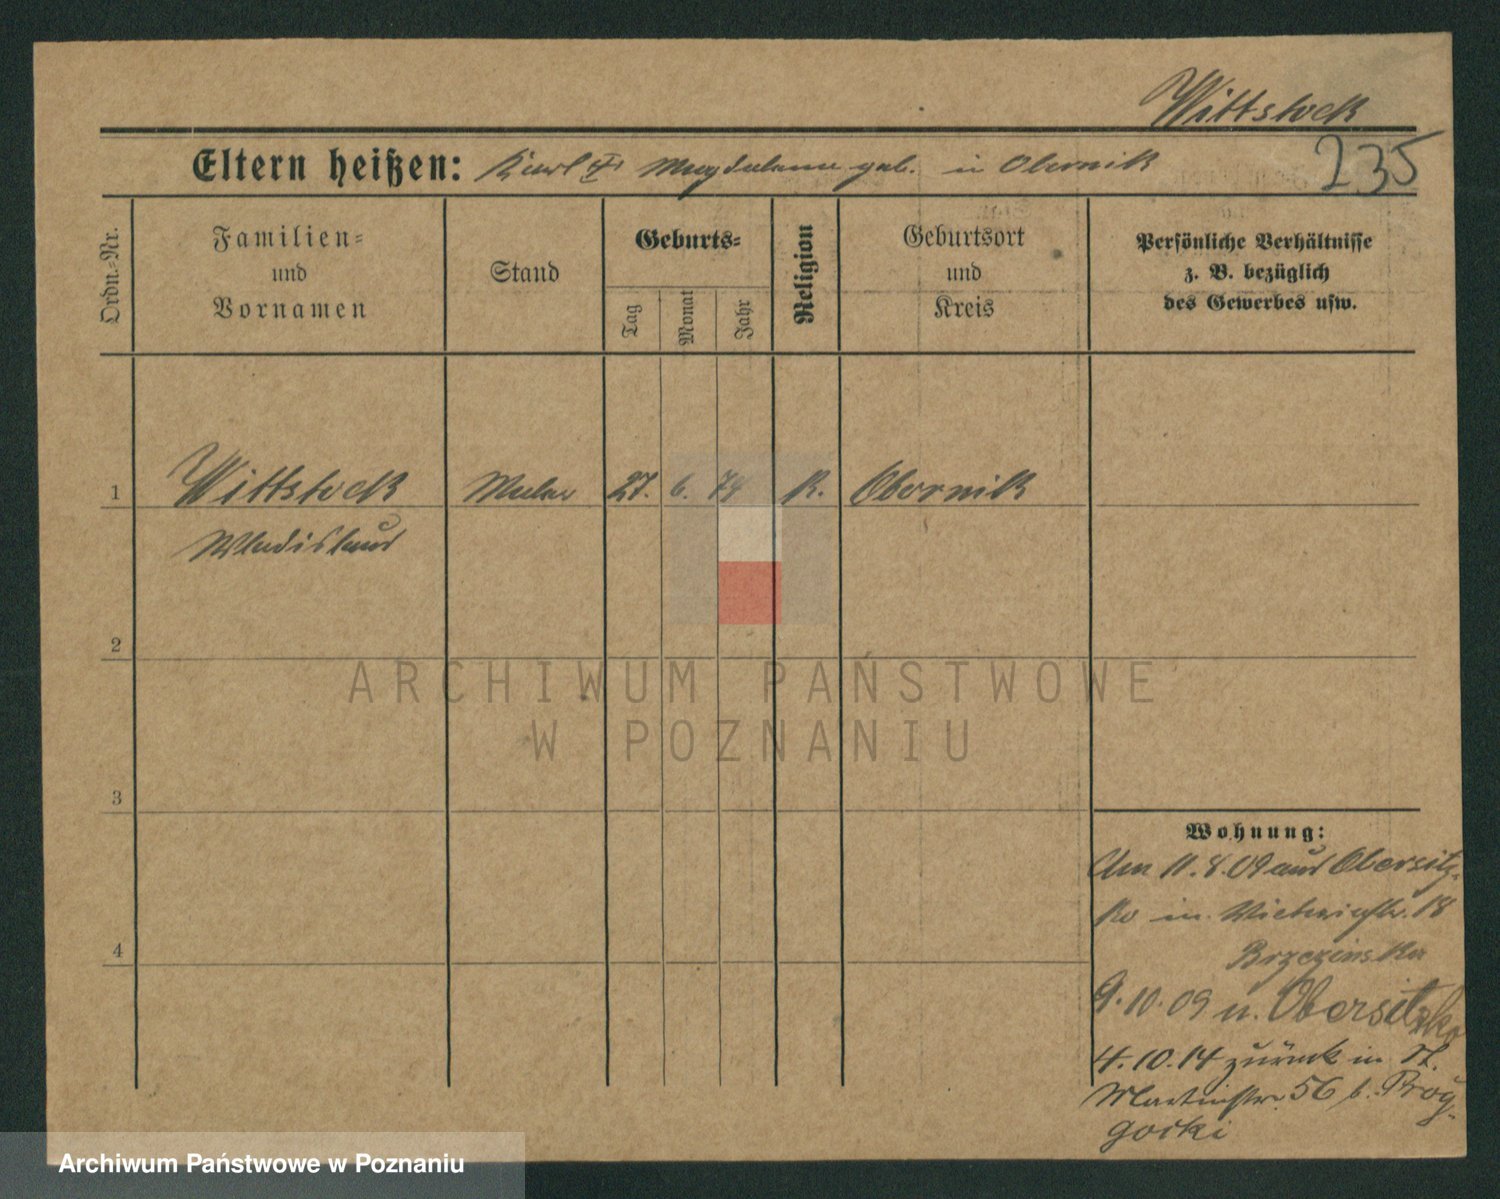 Wittstock
Eltern heißen: Karl u Magdalena geb. in Obornik
235
Ordn.-Nr.
Familien- und Vornamen
Stand
Geburts-
Tag
Monat
Jahr
Religion
Geburtsort und Kreis
Persönliche Verhältnisse
z. B. bezüglich
des Gewerbes usw.
1 Wittstock Maler 27. 6. 74 K. Obornik
Wladislaus
2
3
4
Wohnung:
Am 11.8.09 aus Obersitz-
ko in Victoriastr. 18
Brzezinska
9.10.09 n. Obersitzko
4.10.14 zurück in St.
Martinstr. 56 b. Rog-
gocki
ARCHIWUM PAŃSTWOWE
W POZNANIU
Archiwum Państwowe w Poznaniu